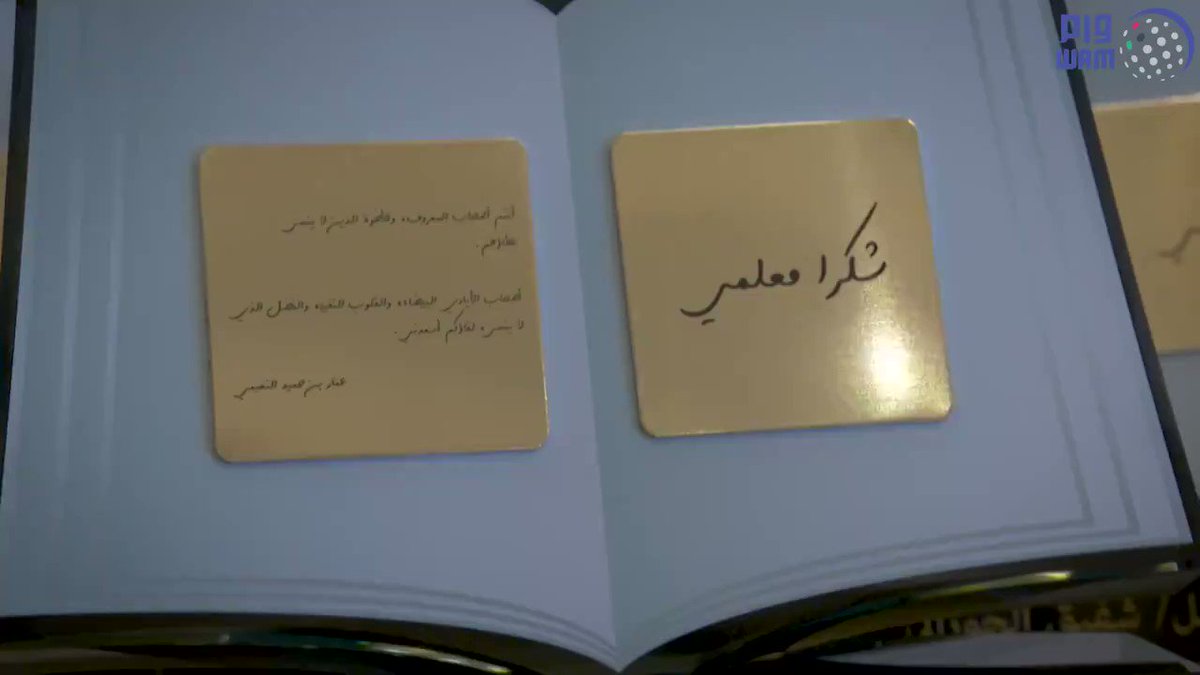 وام
WAM
شكرا معلمي
أنتم أصحاب المعروف، والقلوب الذين لا ينسى
فضلكم.
أصحاب الأيادي البيضاء، والقلوب النقية، والفضل الذي
لا ينسى، لقاؤكم أسعدني.
عمار بن حميد النعيمي
/ شفيق